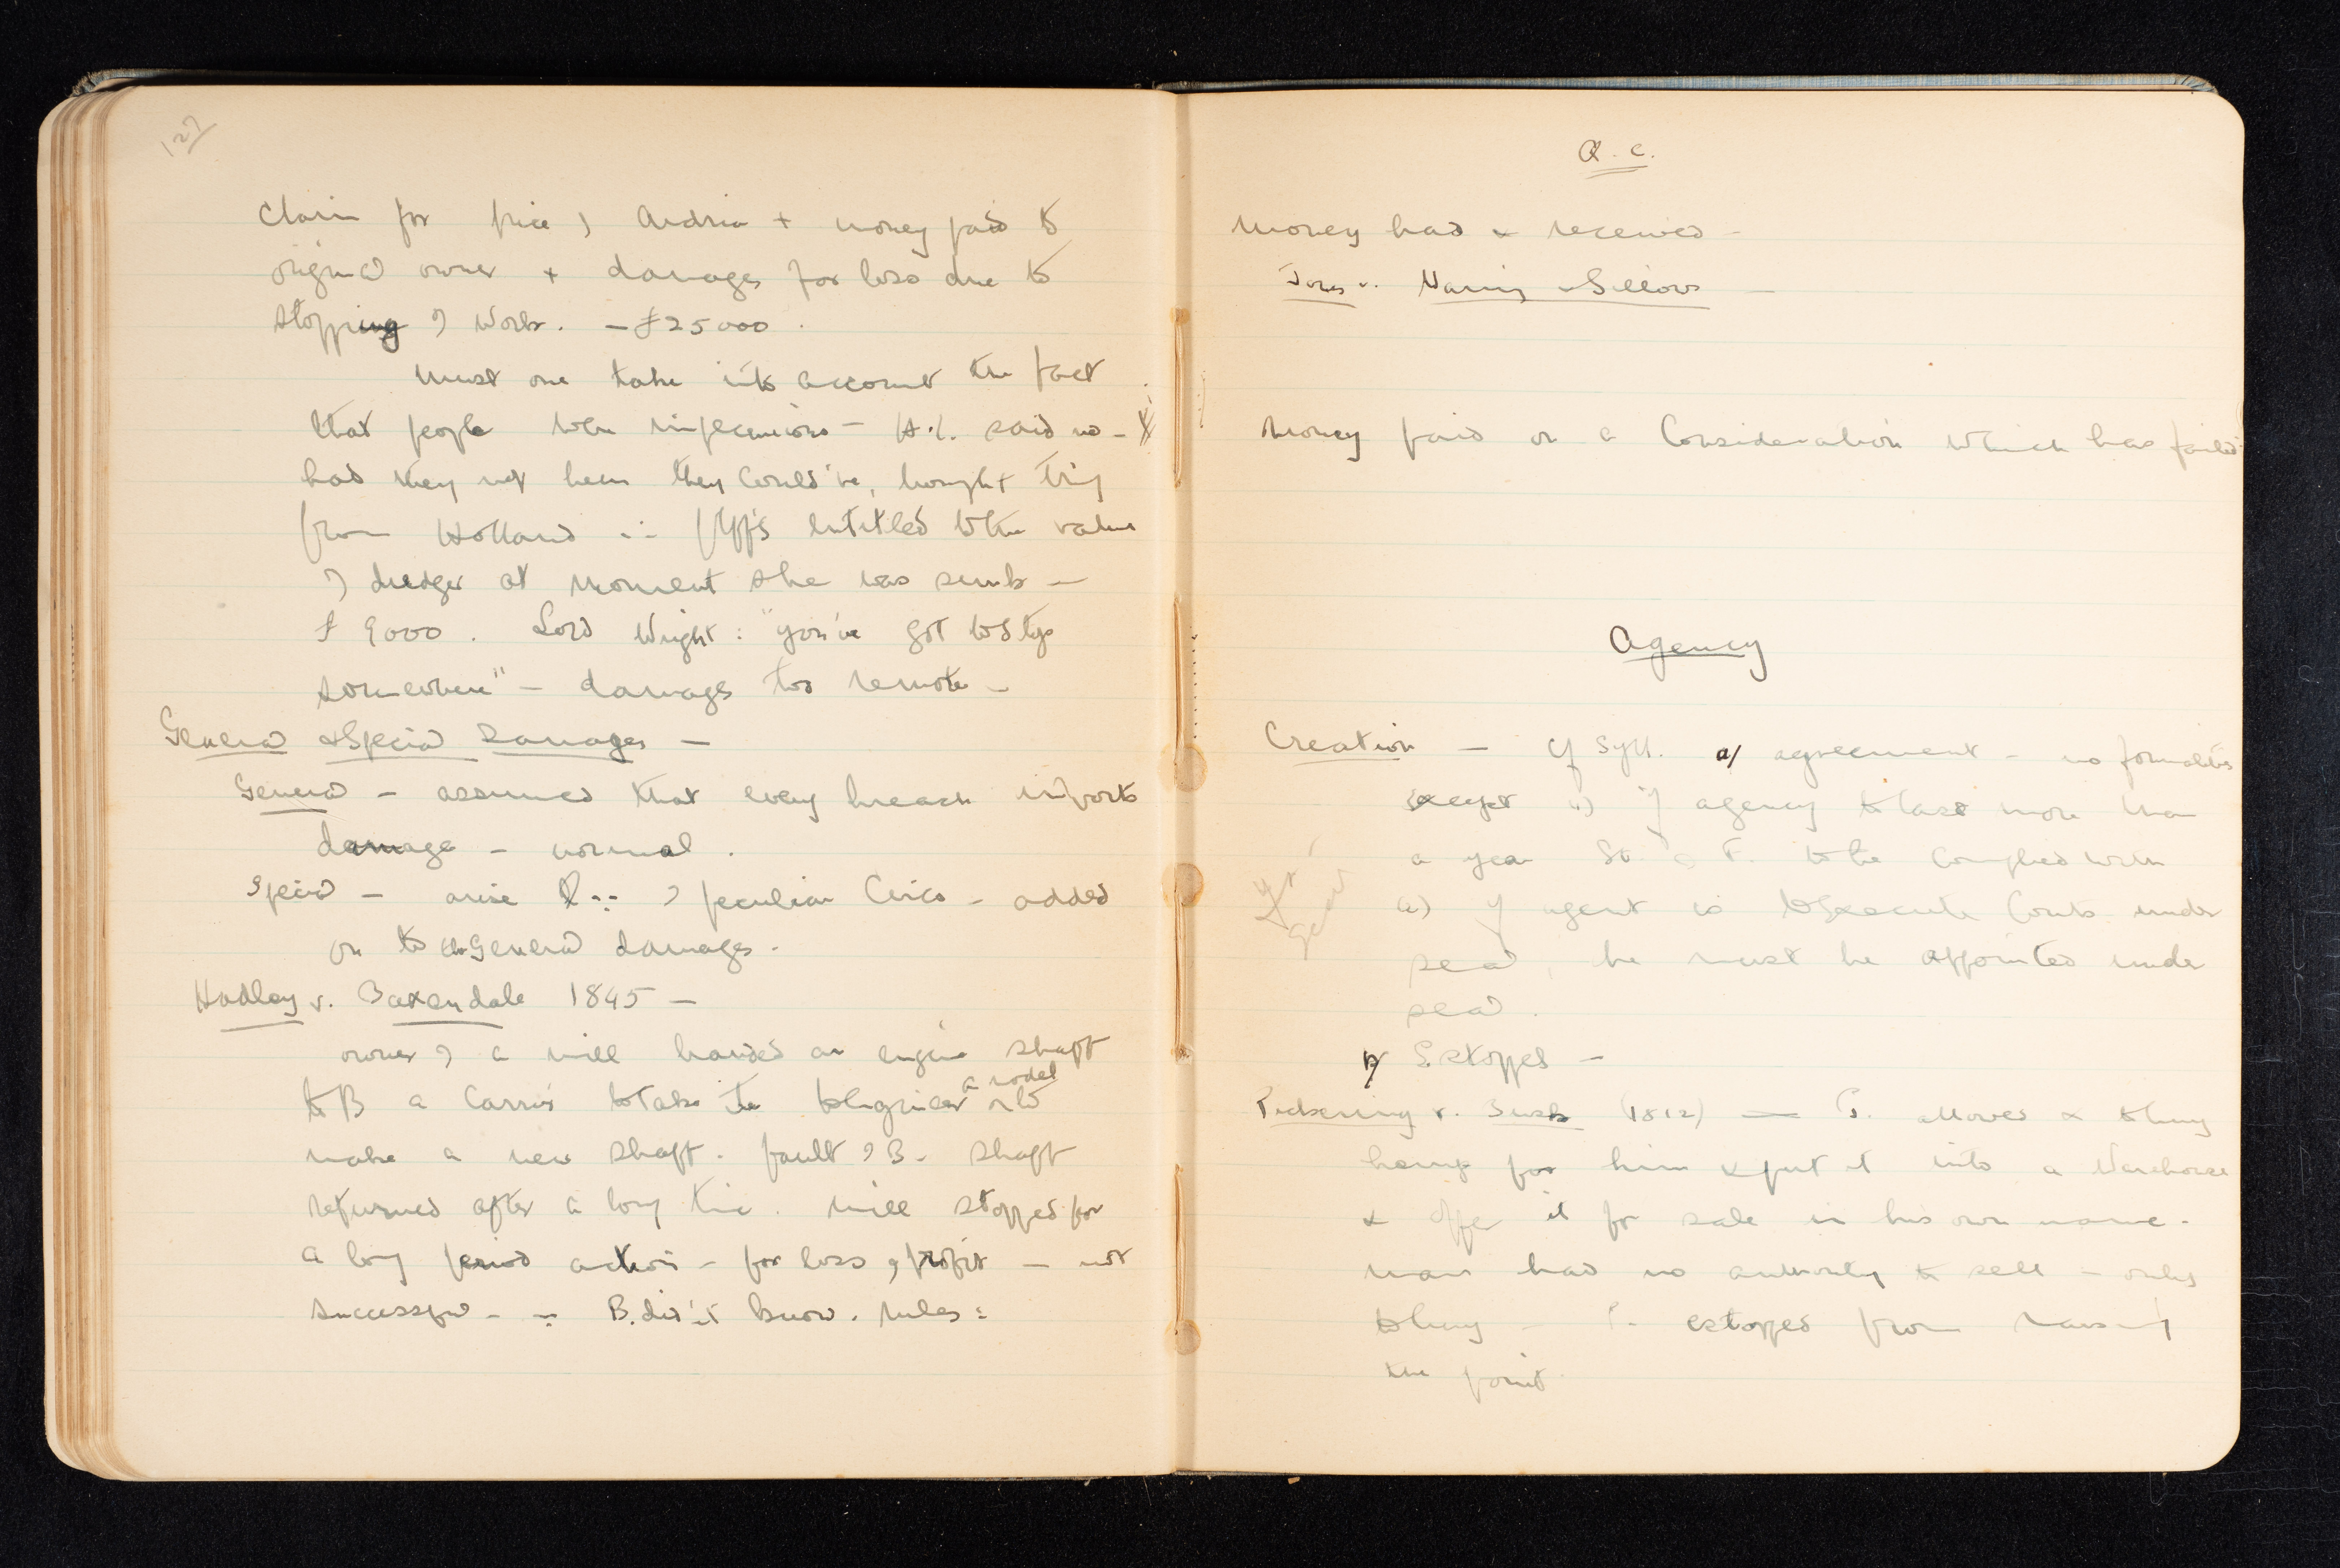 127
Claim for price of Andria + money paid to
original owner + damages for loss due to
stopping of work. — £25000.
Must one take into account the fact
that people were impecunious — H.L. said no —
had they not been they could've, bought
from Holland ∴ plffs entitled to the value
of dredger at moment she was sunk —
£9000. Lord Wright: "you've got to stop
somewhere" — damages too remote —
General & Special Damages —
General — assumed that every breach imports
damage — normal.
Special — arise of peculiar Circs — added
on to the General damages.
Hadley v. Baxendale 1845 —
owner of a mill handed an engine shaft
to B a Carrier to take to engineer
a model
make a new shaft. fault of B. shaft
returned after a long time. Mill stopped for
a long period action — for loss of profit — not
successful — ∵ B. didn't know. Rules:
Q.C.
Money had & received —
Jones v. Waring & Gillow —
Money paid on a Consideration which has failed
Agency
Creation — cf Syll. a/ agreement — no formalities
except i) if agency to last more than
a year St. of F. to be complied with
a) if agent is to execute Conts under
seal, he must be appointed under
seal.
b/ Estoppel —
Pickering v. Busk (1812) — P. allowed to buy
hemp for him & put it into a Warehouse
& offer it for sale in his own name.
man had no authority to sell — only
to buy — P. estopped from raising
the point